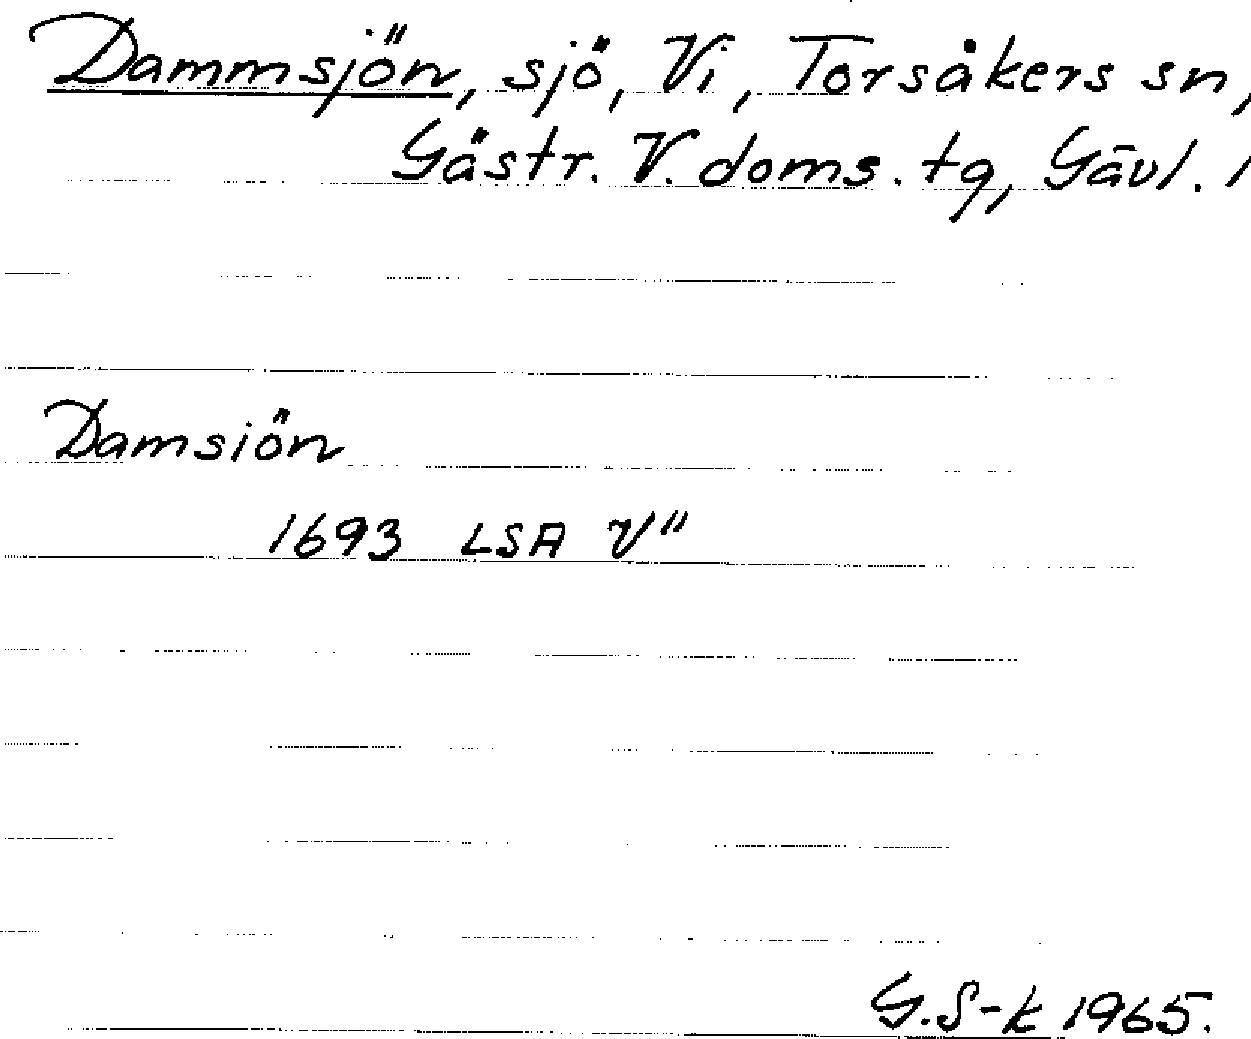 Dammsjön, sjö, Vi, Torsåkers sn,
Gästr. V. doms. tg, Gävl. l
Damsiön
1693 LSA V"
G.S-k 1965.